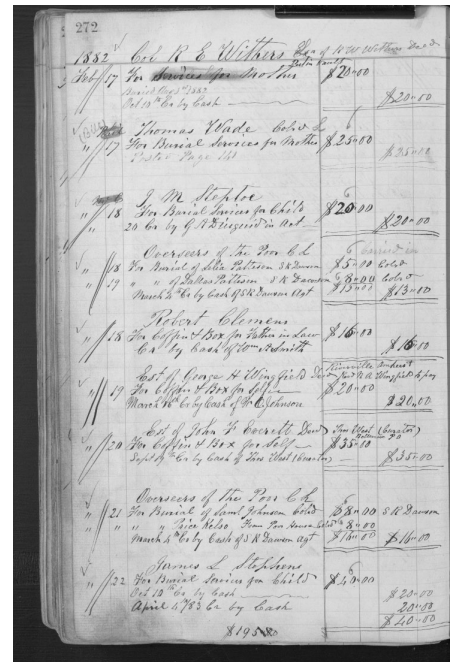 272
1882 Col R E Withers Exr of W W Withers Decd
Feb 17 For Services for Mother $20.00
Oct 10th Cr by Cash $20.00
Thomas Wade Cold
" 17 For Burial Services for Mother $25.00 $25.00
J M Steptoe
" 18 For Burial Services for Child $20.00
$20.00
Overseers of the Poor C L
" 18 For Burial of Pattison S R Dawson $5.00 Cold
" 19 " " of Pattison S R Dawson $8.00 Cold
March 4th Cr by Cash of S R Dawson Agt $13.00 $13.00
Robert Clemens
" 18 For Coffin & Box for Father in Law $16.00
Cr by Cash of Wm Smith $16.00
Est of George H Wingfield Decd
" 19 For Coffin & Box for $20.00
March 16th Cr by Cash of Johnson $20.00
Est of John H Everett Decd Thos West (Curator)
" 20 For Coffin & Box for Self $35.00
Sept Cr by Cash of Thos West (Curator) $35.00
Overseers of the Poor C L
" 21 For Burial of Saml Johnson Cold $8.00 S R Dawson
" " " " Price Kelso From Poor House Cold $8.00
March 4th Cr by Cash of S R Dawson Agt $16.00 $16.00
James L Stephens
" 22 For Burial Services for Child $40.00
Oct 10th Cr by Cash $20.00
April 4th 83 Cr by Cash 20.00
$40.00